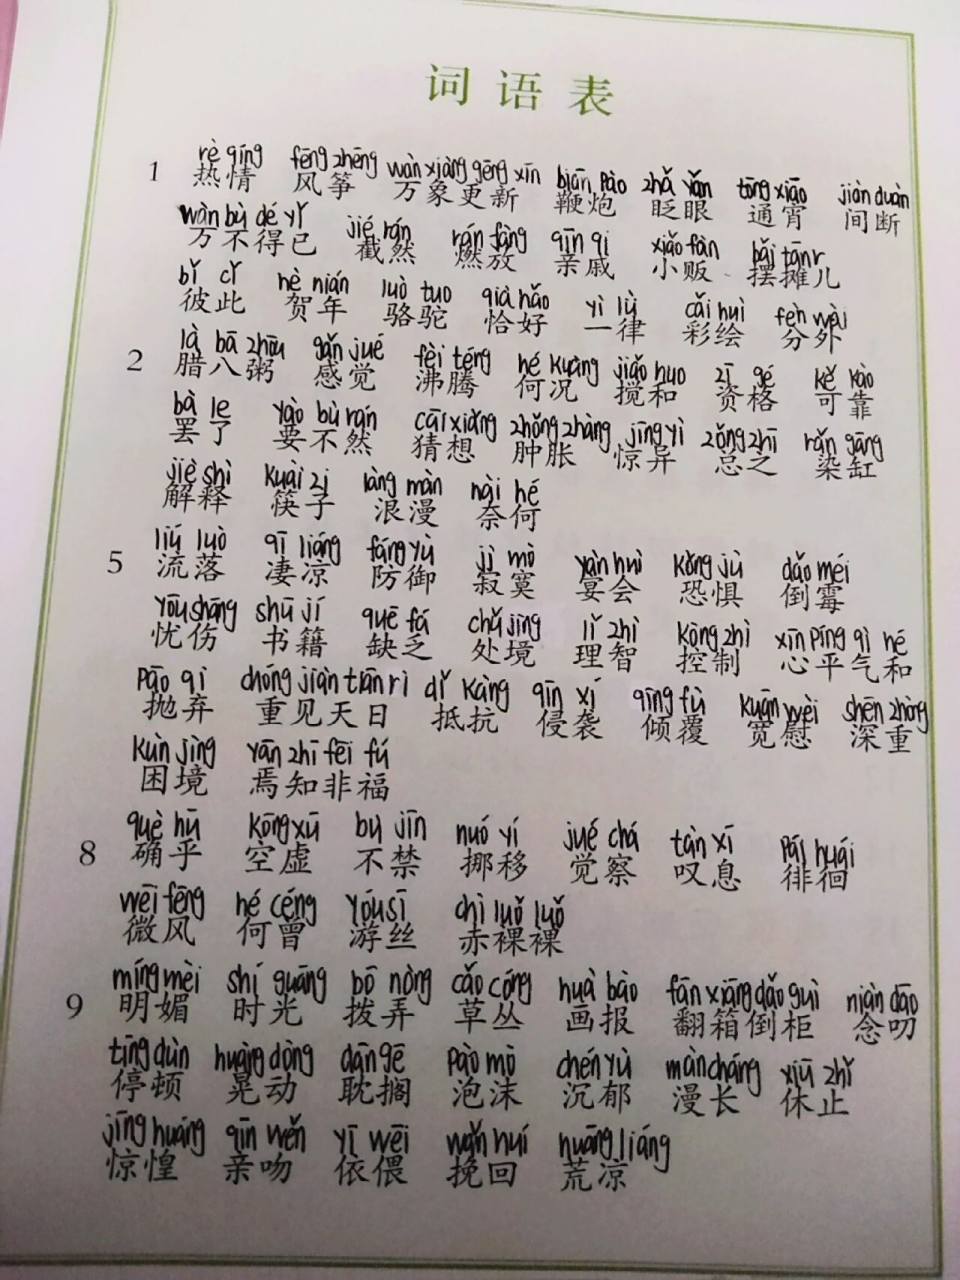 词语表
rè qíng fēng zhēng wàn xiàng gēng xīn biān pào zhǎ yǎn tōng xiāo jiàn duàn
1 热情 风筝 万象更新 鞭炮 眨眼 通宵 间断
wàn bù dé yǐ jié rán rán fàng qīn qi xiǎo fàn bǎi tānr
万不得已 截然 燃放 亲戚 小贩 摆摊儿
bǐ cǐ hè nián luò tuo qià hǎo yì lǜ cǎi huì fèn wài
彼此 贺年 骆驼 恰好 一律 彩绘 分外
là bā zhōu gǎn jué fèi téng hé kuàng jiǎo huo zī gé kě kào
2 腊八粥 感觉 沸腾 何况 搅和 资格 可靠
bà le yào bù rán cāi xiǎng zhǒng zhàng jīng yì zǒng zhī rǎn gāng
罢了 要不然 猜想 肿胀 惊异 总之 染缸
jiě shì kuài zi làng màn nài hé
解释 筷子 浪漫 奈何
liú luò qī liáng fáng yù jì mò yàn huì kǒng jù dǎo méi
5 流落 凄凉 防御 寂寞 宴会 恐惧 倒霉
yōu shāng shū jí quē fá chǔ jìng lǐ zhì kòng zhì xīn píng qì hé
忧伤 书籍 缺乏 处境 理智 控制 心平气和
pāo qì chóng jiàn tiān rì dǐ kàng qīn xí qīng fù kuān wèi shēn zhòng
抛弃 重见天日 抵抗 侵袭 倾覆 宽慰 深重
kùn jìng yān zhī fēi fú
困境 焉知非福
què hū kōng xū bù jīn nuó yí jué chá tàn xī pái huái
8 确乎 空虚 不禁 挪移 觉察 叹息 徘徊
wēi fēng hé céng yóu sī chì luǒ luǒ
微风 何曾 游丝 赤裸裸
míng mèi shí guāng bō nòng cǎo cóng huà bào fān xiāng dǎo guì niàn dāo
9 明媚 时光 拨弄 草丛 画报 翻箱倒柜 念叨
tíng dùn huàng dòng dān gē pào mò chén yù màn cháng xiū zhǐ
停顿 晃动 耽搁 泡沫 沉郁 漫长 休止
jīng huáng qīn wěn yī wēi wǎn huí huāng liáng
惊惶 亲吻 依偎 挽回 荒凉